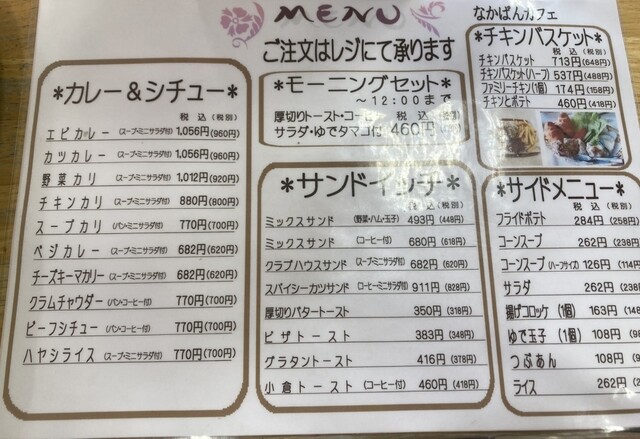 MENU
ご注文はレジにて承ります
なかぱんカフェ
*カレー＆シチュー*
税込(税別)
エビカレー (スープ・ミニサラダ付) 1,056円(960円)
カツカレー (スープ・ミニサラダ付) 1,056円(960円)
野菜カリー (スープ・ミニサラダ付) 1,012円(920円)
チキンカリー (スープ・ミニサラダ付) 880円(800円)
スープカリー (パン・ミニサラダ付) 770円(700円)
ベジカレー (スープ・ミニサラダ付) 682円(620円)
チーズキーマカリー (スープ・ミニサラダ付) 682円(620円)
クラムチャウダー (パン・コーヒー付) 770円(700円)
ビーフシチュー (パン・コーヒー付) 770円(700円)
ハヤシライス (スープ・ミニサラダ付) 770円(700円)
*モーニングセット*
～12:00まで
税込(税別)
厚切りトースト・コーヒー
サラダ・ゆでタマゴ付 460円
*サンドイッチ*
税込(税別)
ミックスサンド (野菜・ハム・玉子) 493円(448円)
ミックスサンド (コーヒー付) 680円(618円)
クラブハウスサンド (スープ・ミニサラダ付) 682円(620円)
スパイシーカツサンド (コーヒー・ミニサラダ付) 911円(828円)
厚切りバタートースト 350円(318円)
ピザトースト 383円(348円)
グラタントースト 416円(378円)
小倉トースト (コーヒー付) 460円(418円)
*チキンバスケット*
税込(税別)
チキンバスケット 713円(648円)
チキンバスケット(ハーフ) 537円(488円)
ファミリーチキン(1個) 174円(158円)
チキンとポテト 460円(418円)
*サイドメニュー*
税込(税別)
フライドポテト 284円(258円)
コーンスープ 262円(238
コーンスープ (ハーフサイズ) 126円(114
サラダ 262円(238
揚げコロッケ (1個) 163円(148
ゆで玉子 (1個) 108円(9
つぶあん 108円(9
ライス 262円(2